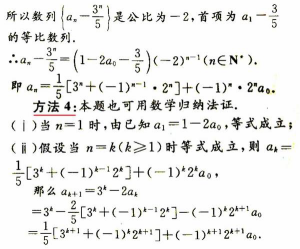 所以数列{aₙ-3ⁿ/5}是公比为-2,首项为a₁-3/5
的等比数列.
∴aₙ-3ⁿ/5=(1-2a₀-3/5)(-2)ⁿ⁻¹(n∈N*).
即aₙ=1/5[3ⁿ+(-1)ⁿ⁻¹·2ⁿ]+(-1)ⁿ·2ⁿa₀.
方法4:本题也可用数学归纳法证.
(ⅰ)当n=1时,由已知a₁=1-2a₀,等式成立;
(ⅱ)假设当n=k(k≥1)时等式成立,则aₖ=
1/5[3ᵏ+(-1)ᵏ⁻¹2ᵏ]+(-1)ᵏ2ᵏa₀,
那么aₖ₊₁=3ᵏ-2aₖ
=3ᵏ-2/5[3ᵏ+(-1)ᵏ⁻¹2ᵏ]-(-1)ᵏ2ᵏ⁺¹a₀
=1/5[3ᵏ⁺¹+(-1)ᵏ2ᵏ⁺¹]+(-1)ᵏ⁺¹2ᵏ⁺¹a₀.